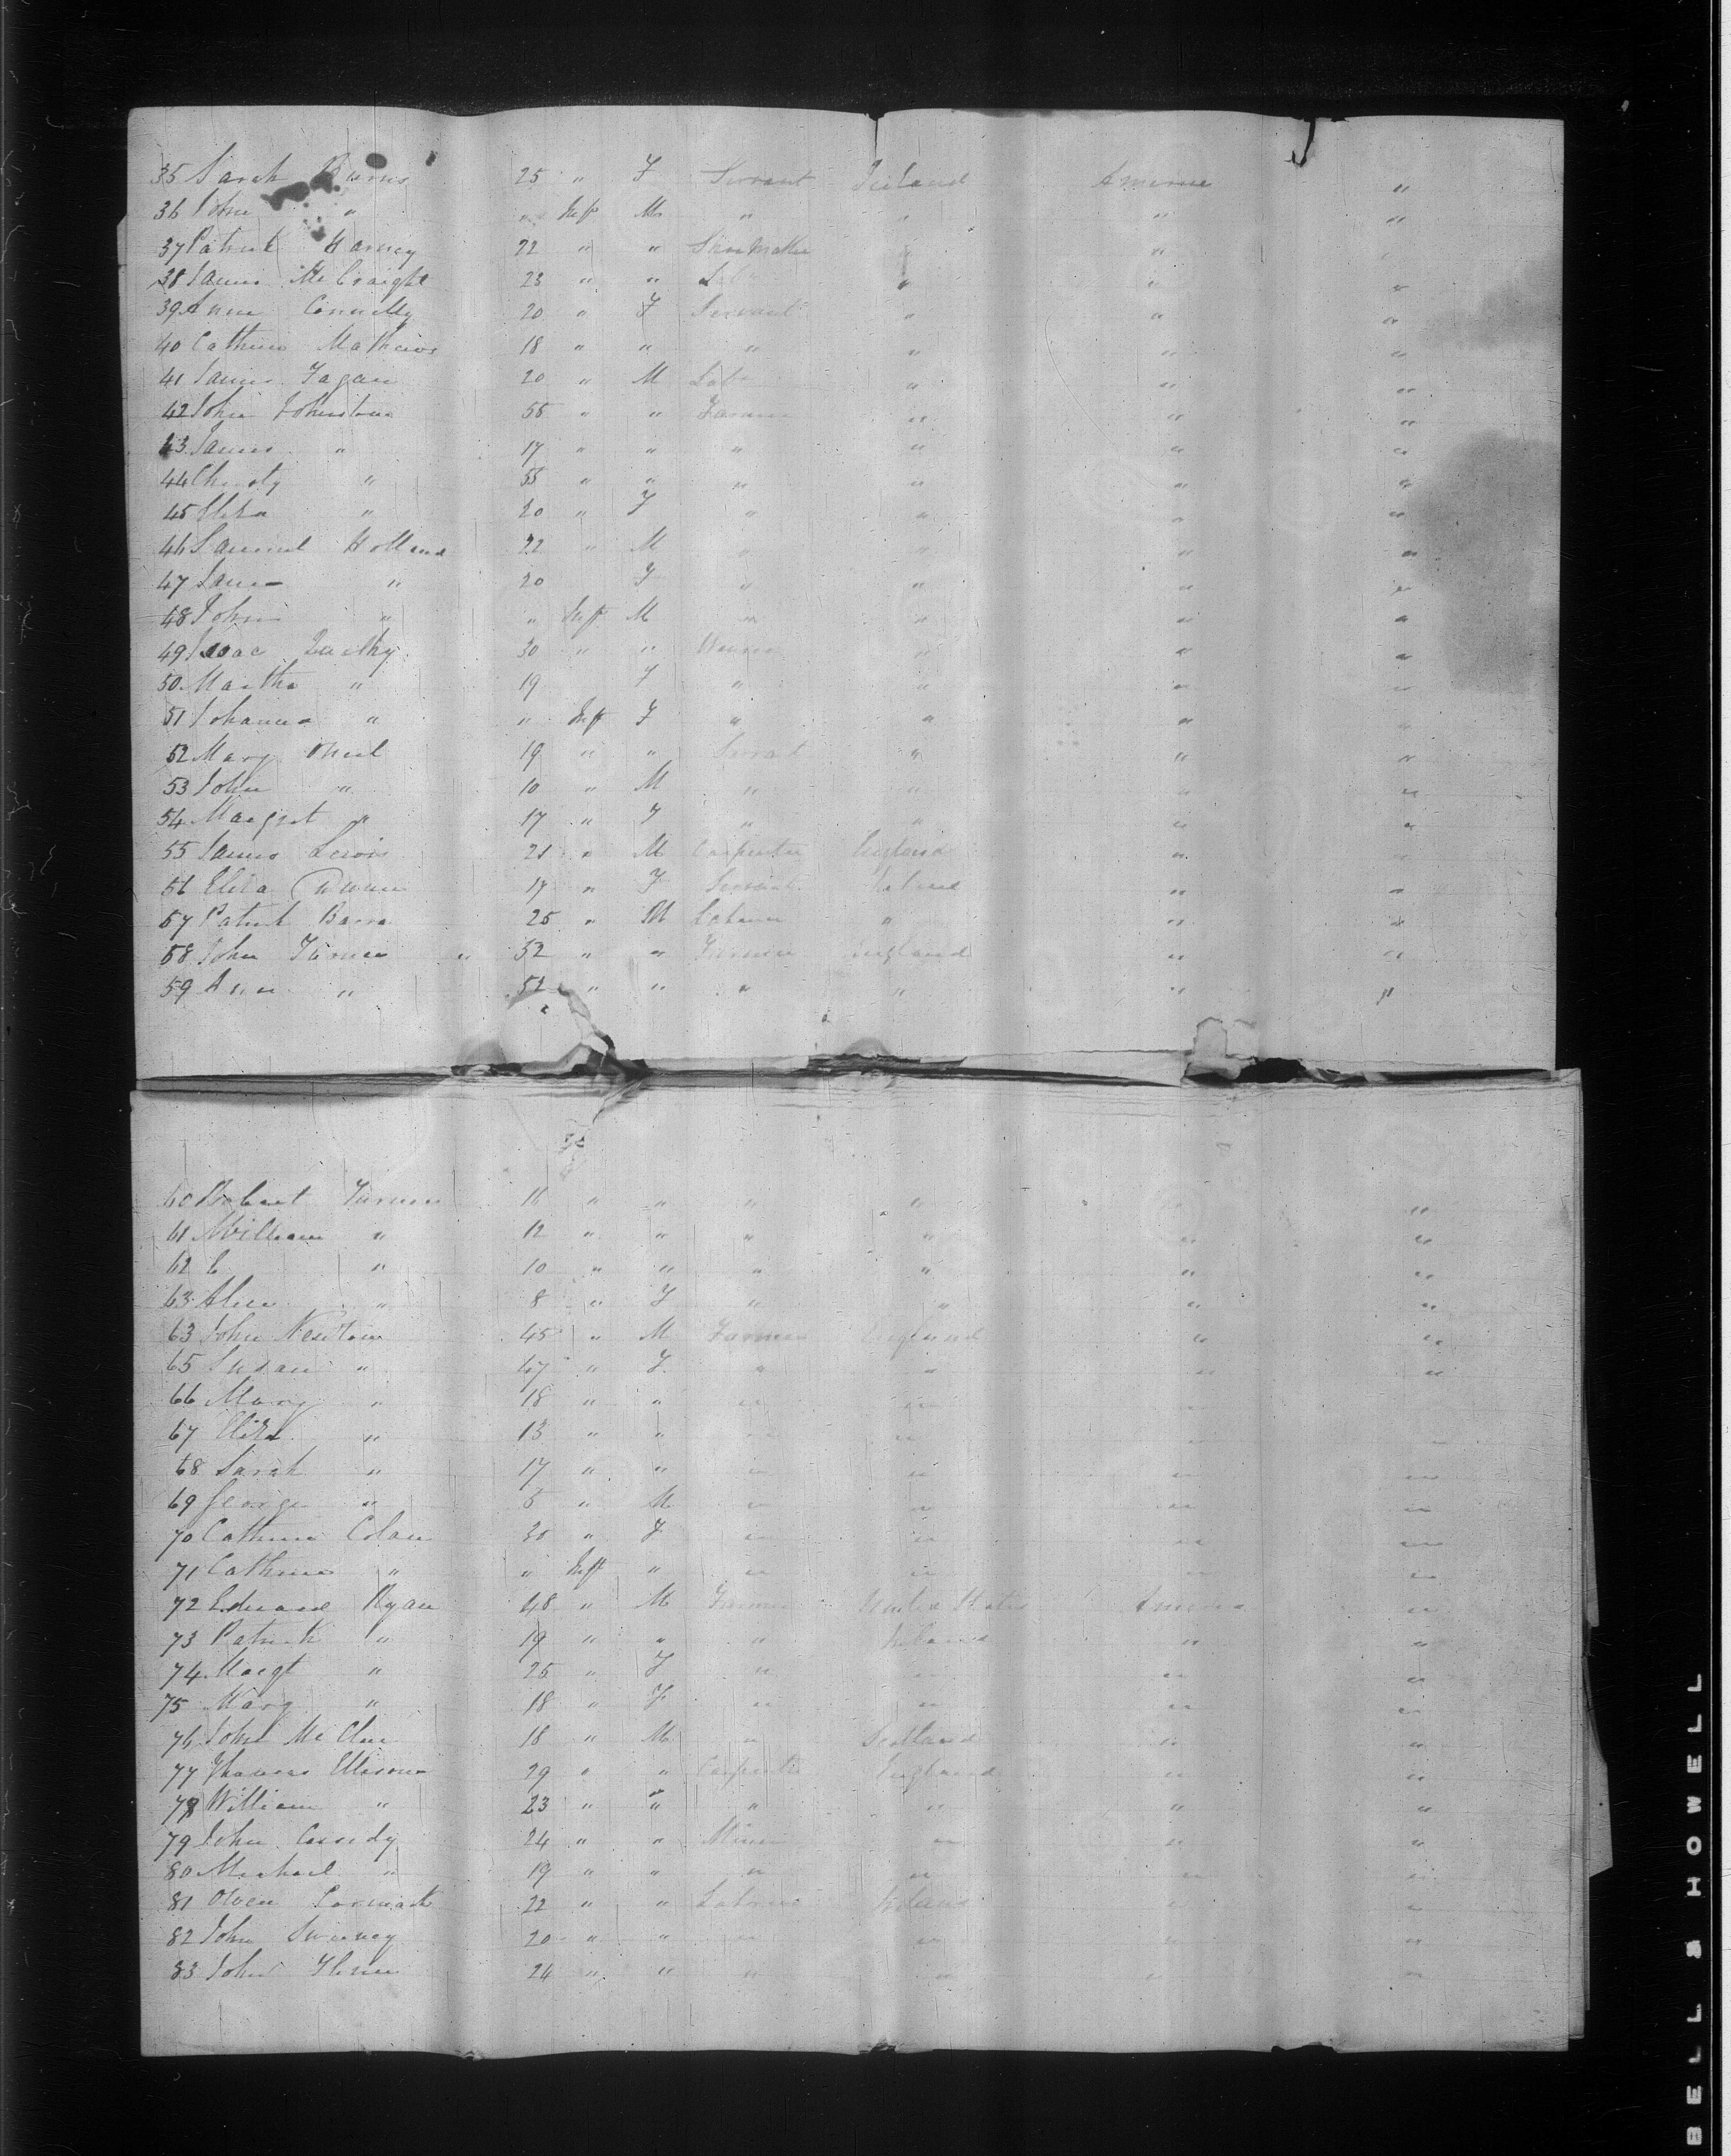 35 Sarah Burns 25 " F Servant Ireland America "
36 John " " Inft M " " " "
37 Patrick Harvey 22 " " Shoemaker " " "
38 James McCraight 23 " " Lab " " "
39 Anne Connelly 20 " F Servant " " "
40 Cathrine Mathews 18 " " " " " "
41 James Fagan 20 " M Lab " " "
42 John Johnston 55 " " Farmer " " "
43 James " 17 " " " " " "
44 Christy " 55 " " " " " "
45 Eliza " 20 " F " " " "
46 Samuel Holland 22 " M " " " "
47 Jane " 20 F " " " "
48 John " " Inft M " " " "
49 Isaac 30 " " " " "
50 Martha " 19 F " " " "
51 Johanna " " Inft F " " " "
52 Mary Oneil 19 " " Servant " " "
53 John " 10 " M " " " "
54 Margret " 17 " F " " " "
55 James Lewis 21 " M Carpenter England " "
56 Eliza 17 " F Servant Ireland " "
57 Patrick Barra 25 " M Laborer " " "
58 John Turner " 52 " " Farmer England " "
59 Ann " 52 " " " " " "
60 Robert Turner 11 " " " " " "
61 William " 12 " " " " " "
62 " 10 " " " " " "
63 Alice " 8 " F " " " "
63 John Newton 45 " M Farmer England " "
65 Susan " 47 " F " " " "
66 Mary " 18 " " " " " "
67 Eliza " 13 " " " " " "
68 Sarah " 17 " " " " " "
69 George " 5 " M " " " "
70 Cathrine Colan 30 " F " " " "
71 Cathrine " " Inft " " " " "
72 Edward Ryan 48 " M Farmer United States America "
73 Patrick " 19 " " " Ireland " "
74 Margt " 25 " F " " " "
75 Mary " 18 " F " " " "
76 John McClue 18 " M " Scotland " "
77 Thomas Ellison 29 " " Carpenter England " "
78 William " 23 " " " " " "
79 John Cassidy 24 " " Miner " " "
80 Michael " 19 " " " " " "
81 Owen Cormack 22 " " Laborer Ireland " "
82 John Sweeney 20 " " " " " "
83 John 24 " " " " " "
BELL & HOWELL